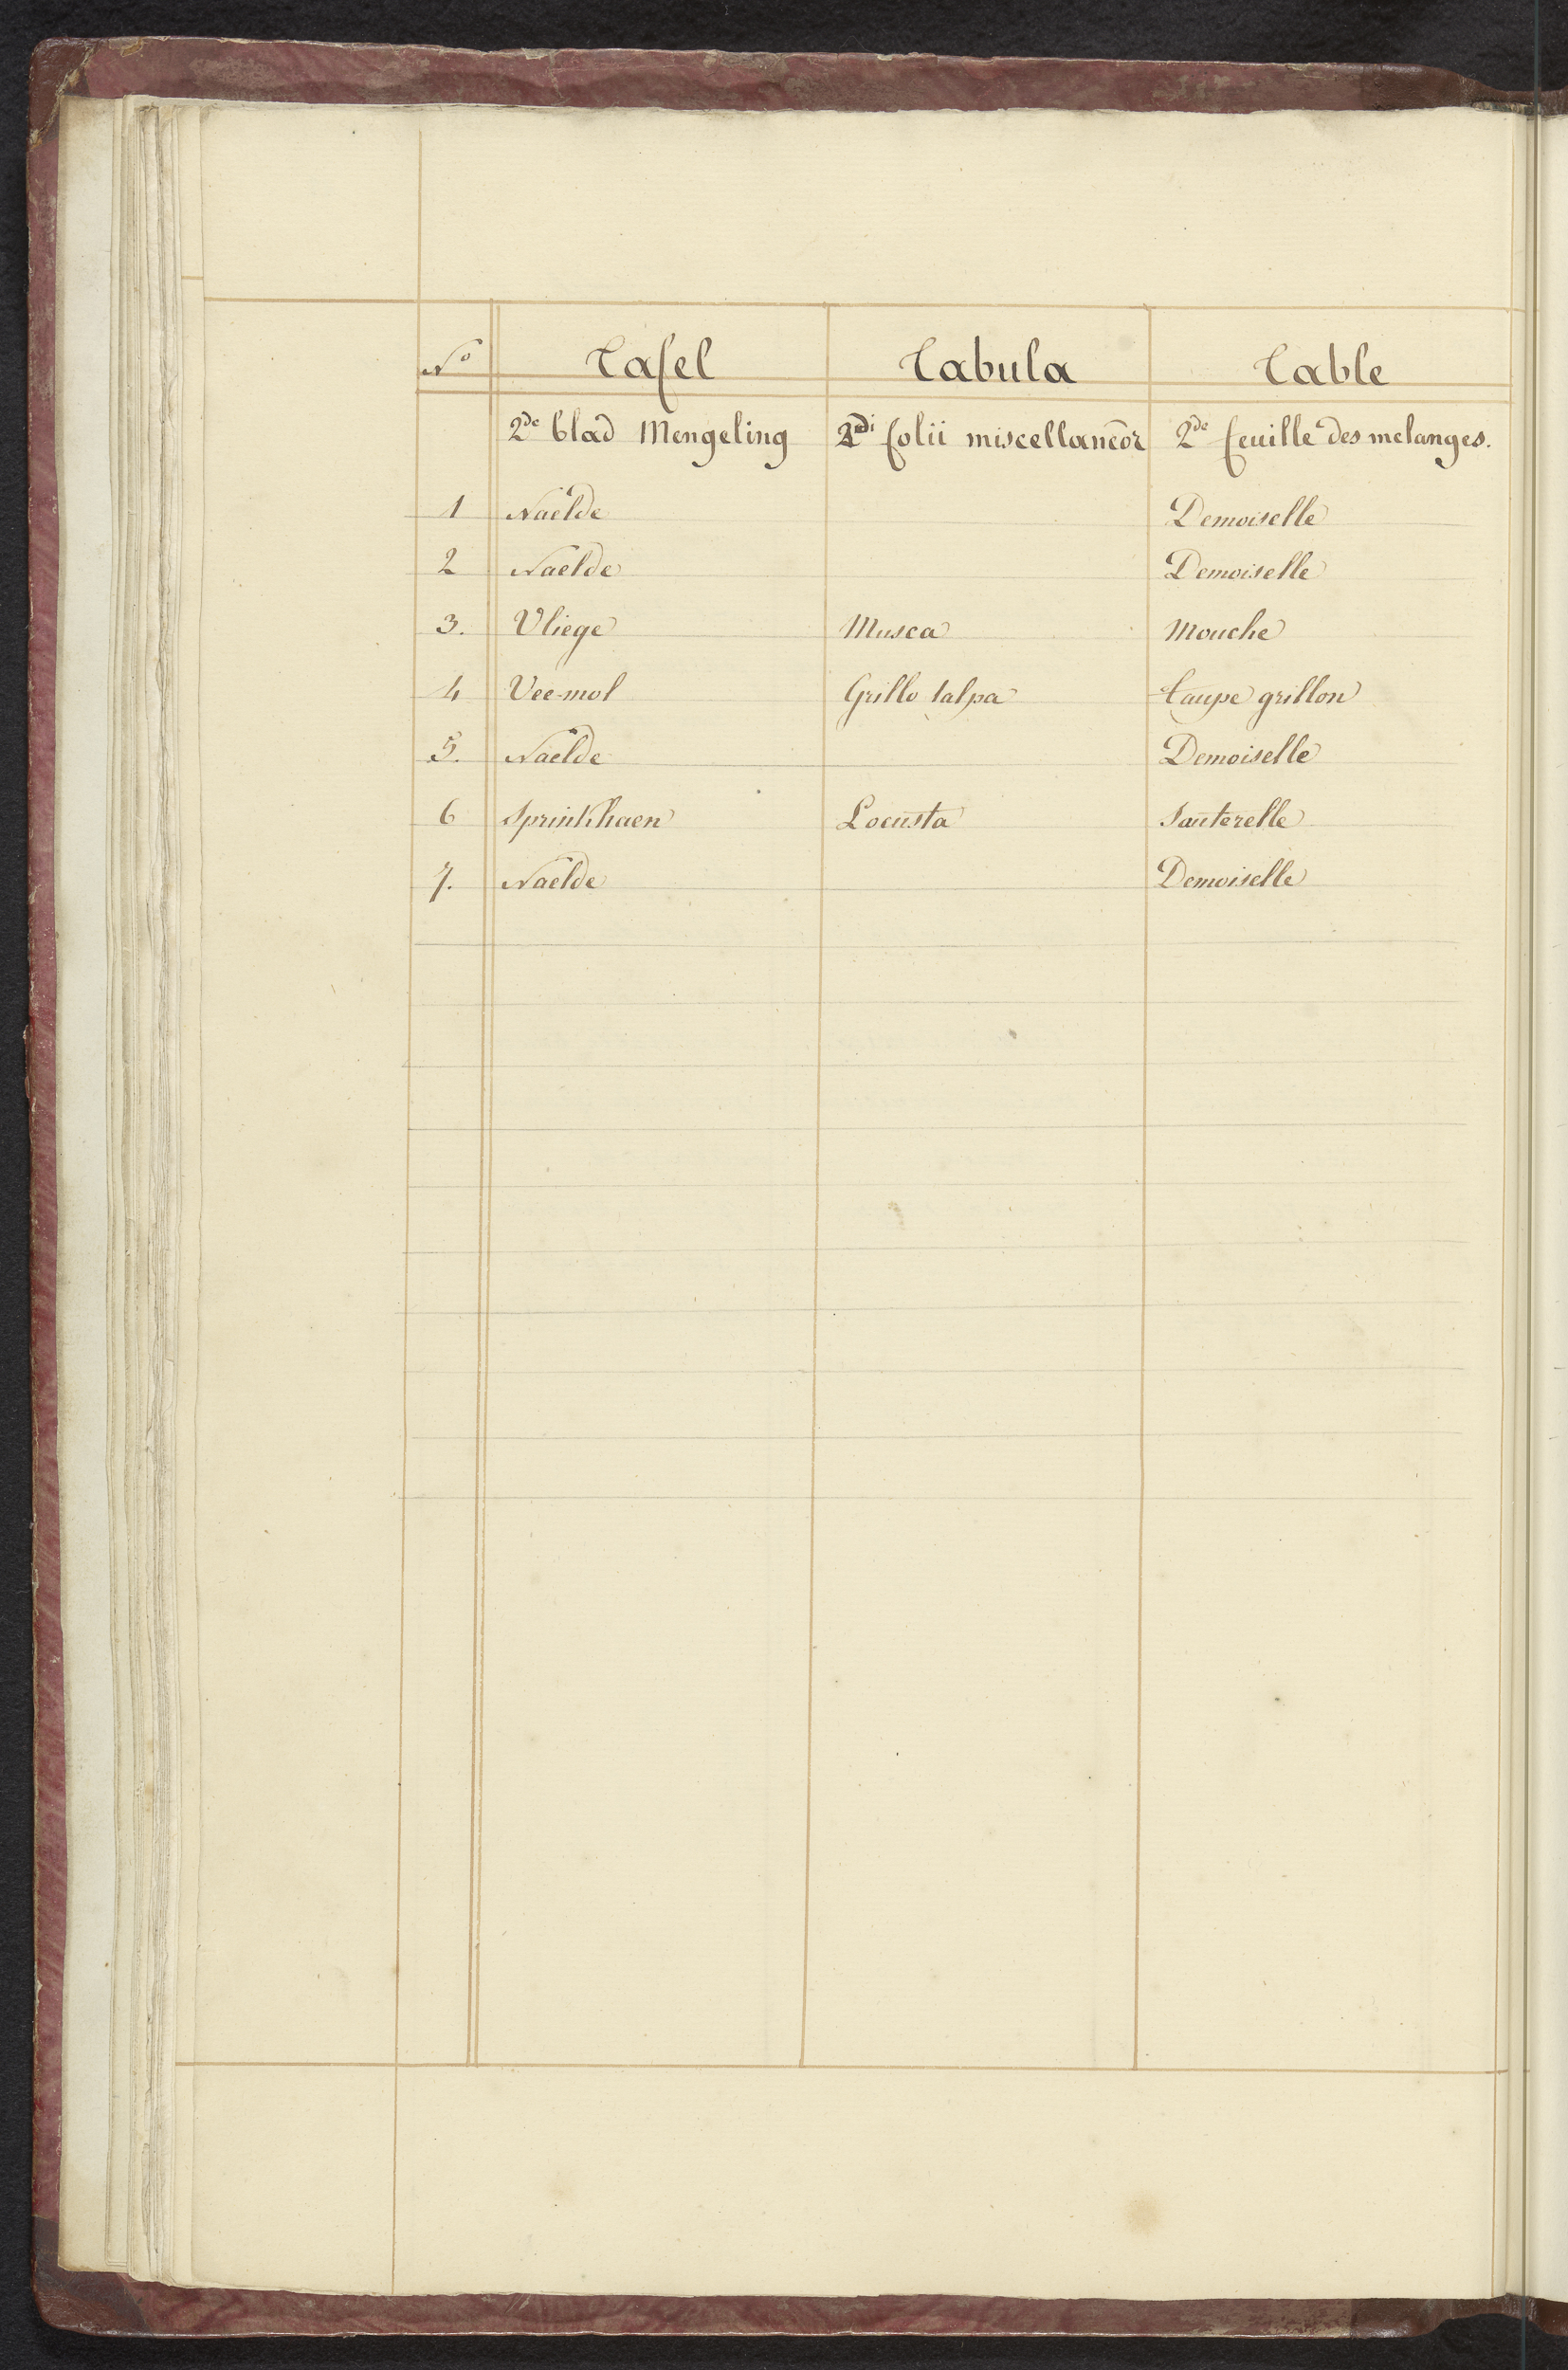 No Tafel Tabula Table
2de blad Mengeling 2di folii miscellaneōr 2de feuille des melanges.
1 Naelde Demoiselle
2 Naelde Demoiselle
3. Vliege Musca Mouche
4 Vee-mol Grillo talpa taupe grillon
5. Naelde Demoiselle
6 Sprinkhaen Locusta Sauterelle
7. Naelde Demoiselle